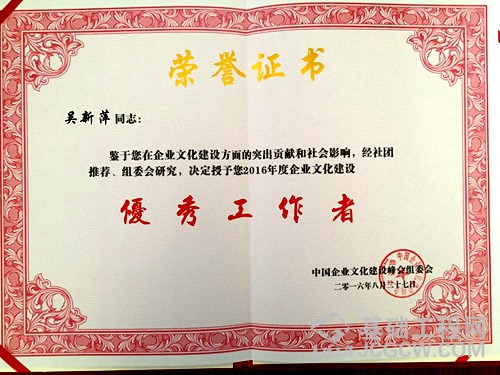 荣誉证书
吴新萍 同志：
鉴于您在企业文化建设方面的突出贡献和社会影响，经社团
推荐、组委会研究，决定授予您2016年度企业文化建设
優秀工作者
中国企业文化建设峰会组委会
二零一六年八月二十七日
基础工程网
JCGCW.com